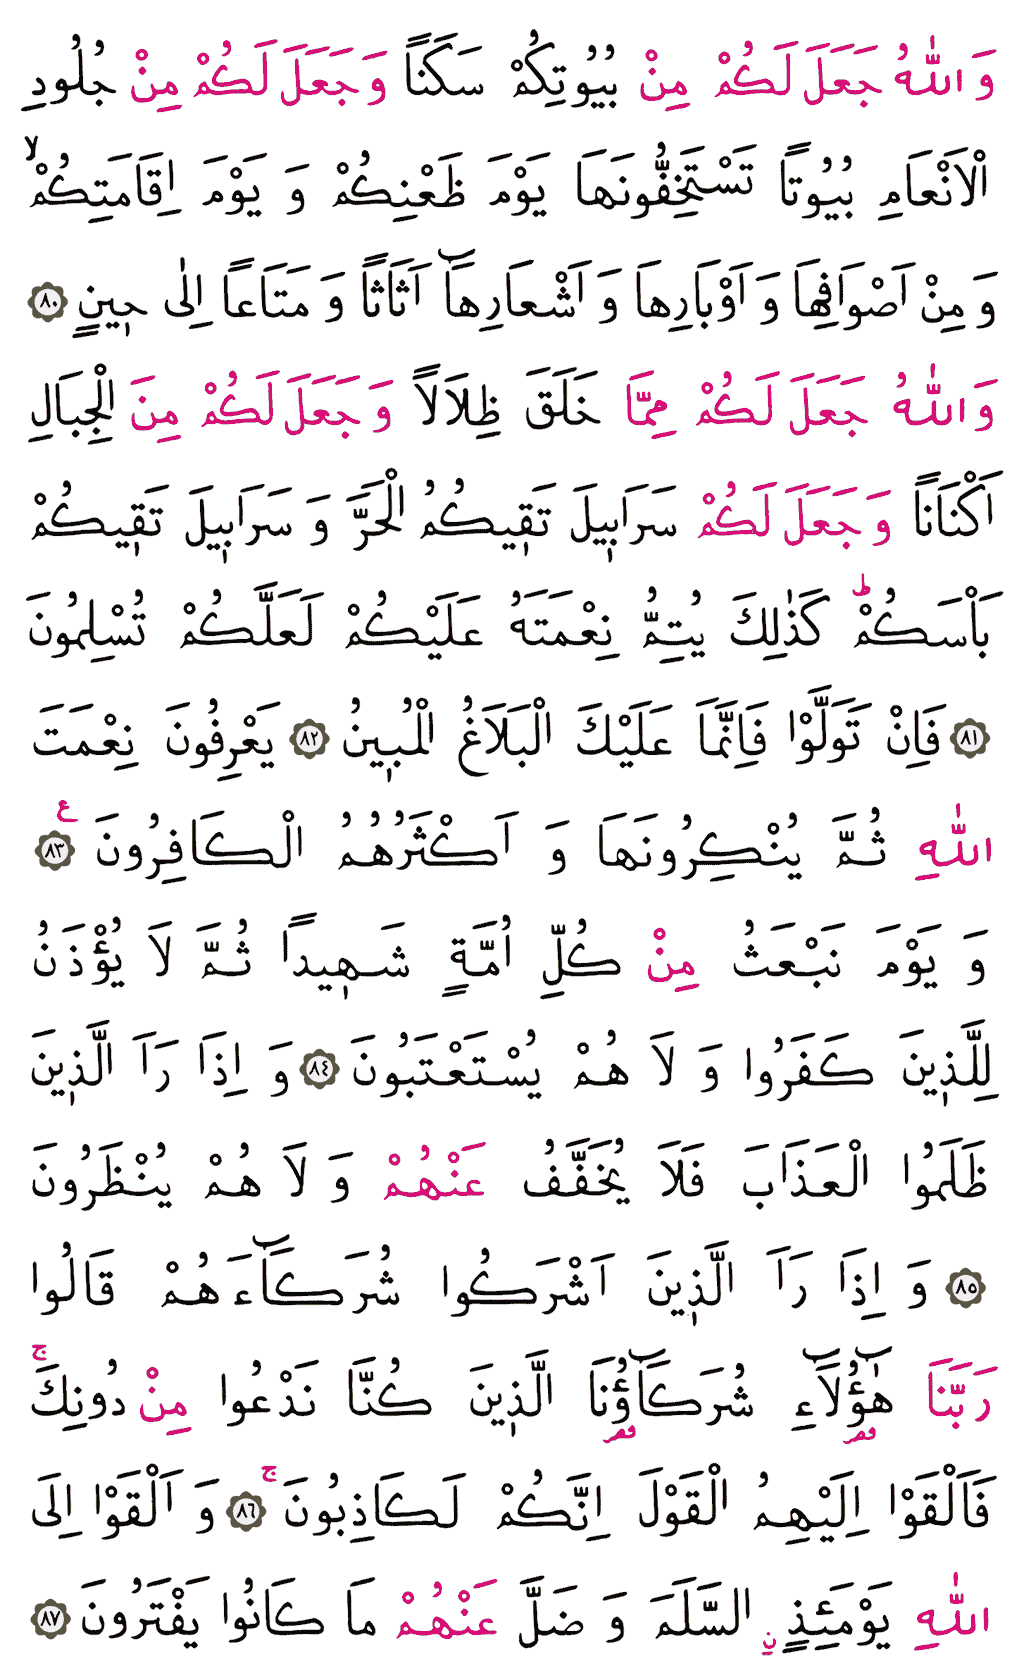 وَاللّٰهُ جَعَلَ لَكُمْ مِنْ بُيُوتِكُمْ سَكَنًا وَجَعَلَ لَكُمْ مِنْ جُلُودِ
الْاَنْعَامِ بُيُوتًا تَسْتَخِفُّونَهَا يَوْمَ ظَعْنِكُمْ وَيَوْمَ اِقَامَتِكُمْۙ
وَمِنْ اَصْوَافِهَا وَاَوْبَارِهَا وَاَشْعَارِهَٓا اَثَاثًا وَمَتَاعًا اِلٰى ح۪ينٍ ﴿٨٠﴾
وَاللّٰهُ جَعَلَ لَكُمْ مِمَّا خَلَقَ ظِلَالًا وَجَعَلَ لَكُمْ مِنَ الْجِبَالِ
اَكْنَانًا وَجَعَلَ لَكُمْ سَرَاب۪يلَ تَق۪يكُمُ الْحَرَّ وَسَرَاب۪يلَ تَق۪يكُمْ
بَأْسَكُمْۜ كَذٰلِكَ يُتِمُّ نِعْمَتَهُ عَلَيْكُمْ لَعَلَّكُمْ تُسْلِمُونَ
﴿٨١﴾ فَاِنْ تَوَلَّوْا فَاِنَّمَا عَلَيْكَ الْبَلَاغُ الْمُب۪ينُ ﴿٨٢﴾ يَعْرِفُونَ نِعْمَتَ
اللّٰهِ ثُمَّ يُنْكِرُونَهَا وَاَكْثَرُهُمُ الْكَافِرُونَ ﴿٨٣﴾ ع
وَيَوْمَ نَبْعَثُ مِنْ كُلِّ اُمَّةٍ شَه۪يدًا ثُمَّ لَا يُؤْذَنُ
لِلَّذ۪ينَ كَفَرُوا وَلَا هُمْ يُسْتَعْتَبُونَ ﴿٨٤﴾ وَاِذَا رَاَ الَّذ۪ينَ
ظَلَمُوا الْعَذَابَ فَلَا يُخَفَّفُ عَنْهُمْ وَلَا هُمْ يُنْظَرُونَ
﴿٨٥﴾ وَاِذَا رَاَ الَّذ۪ينَ اَشْرَكُوا شُرَكَٓاءَهُمْ قَالُوا
رَبَّنَا هٰٓؤُ۬لَٓاءِ شُرَكَٓاؤُ۬نَا الَّذ۪ينَ كُنَّا نَدْعُوا مِنْ دُونِكَۚ
فَاَلْقَوْا اِلَيْهِمُ الْقَوْلَ اِنَّكُمْ لَكَاذِبُونَۚ ﴿٨٦﴾ وَاَلْقَوْا اِلَى
اللّٰهِ يَوْمَئِذٍۨ السَّلَمَ وَضَلَّ عَنْهُمْ مَا كَانُوا يَفْتَرُونَ ﴿٨٧﴾